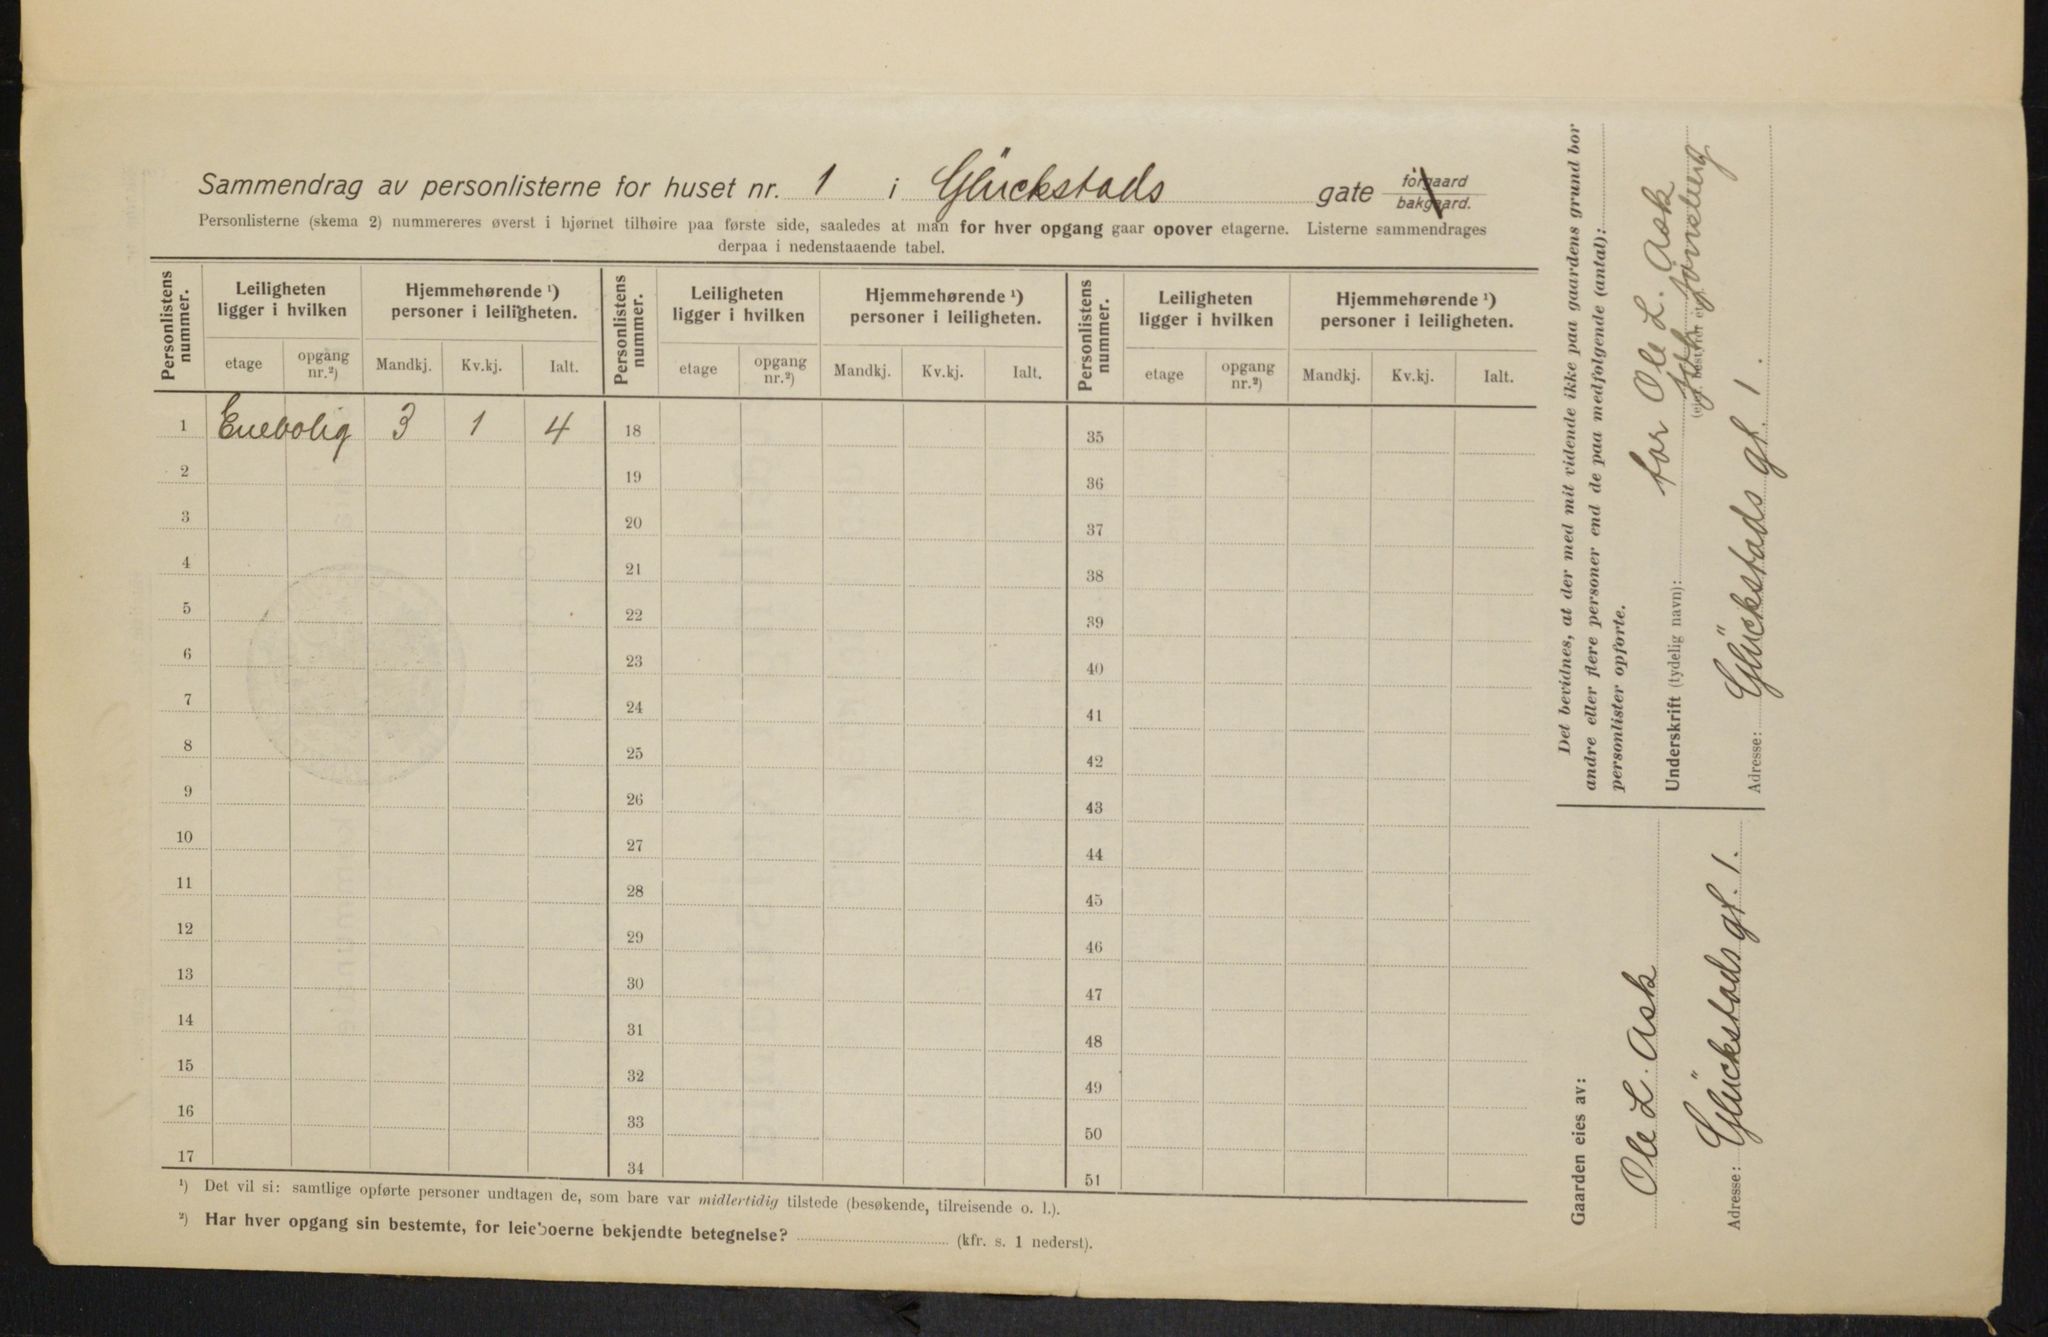 Sammendrag av personlisterne for huset nr. 1 i Glückstads gate forgaard bakgaard.
Personlisterne (skema 2) nummereres øverst i hjørnet tilhøire paa første side, saaledes at man for hver opgang gaar opover etagerne. Listerne sammendrages
derpaa i nedenstaaende tabel.
Personlistens nummer. Leiligheten ligger i hvilken Hjemmehørende ¹) personer i leiligheten. Personlistens nummer. Leiligheten ligger i hvilken Hjemmehørende ¹) personer i leiligheten. Personlistens nummer. Leiligheten ligger i hvilken Hjemmehørende ¹) personer i leiligheten.
etage opgang nr.²) Mandkj. Kv.kj. Ialt. etage opgang nr.²) Mandkj. Kv.kj. Ialt. etage opgang nr.²) Mandkj. Kv.kj. Ialt.
1 Enebolig 3 1 4 18 35
2 19 36
3 20 37
4 21 38
5 22 39
6 23 40
7 24 41
8 25 42
9 26 43
10 27 44
11 28 45
12 29 46
13 30 47
14 31 48
15 32 49
16 33 50
17 34 51
¹) Det vil si: samtlige opførte personer undtagen de, som bare var midlertidig tilstede (besøkende, tilreisende o. l.).
²) Har hver opgang sin bestemte, for leieboerne bekjendte betegnelse? (kfr. s. 1 nederst).
Det bevidnes, at der med mit vidende ikke paa gaardens grund bor
andre eller flere personer end de paa medfølgende (antal):
personlister opførte.
for Ole L. Ask
Underskrift (tydelig navn):
Adresse: Glückstads gt. 1.
Gaarden eies av:
Ole L. Ask
Adresse: Glückstads gt. 1.